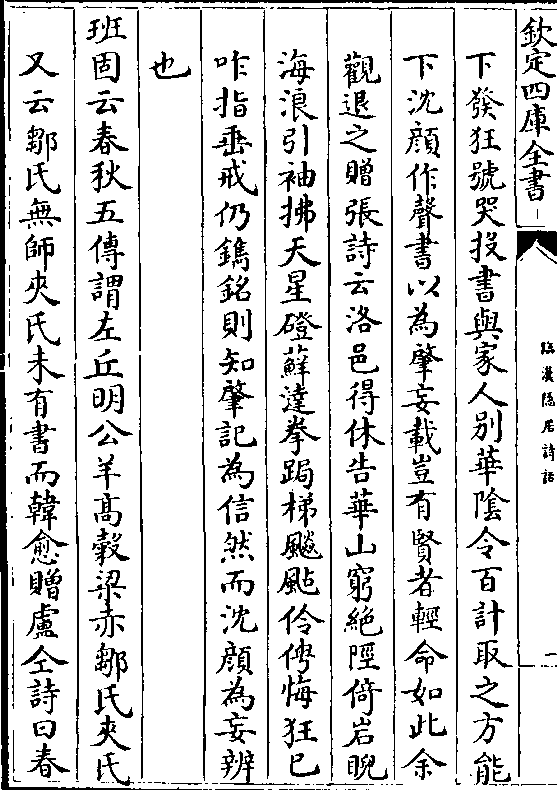 欽定四庫全書
臨漢隱居詩話
一
下發狂號哭投書與家人別華陰令百計取之方能
下沈顔作聲書以為肇妄載豈有賢者輕命如此余
觀退之贈張詩云洛邑得休告華山窮絶陘倚岩睨
海浪引袖拂天星磴蘚澾拳跼梯飇颭伶俜悔狂已
咋指垂戒仍鐫銘則知肇記為信然而沈顔為妄辨
也
班固云春秋五傳謂左丘明公羊髙穀梁赤鄒氏夾氏
又云鄒氏無師夾氏未有書而韓愈贈盧仝詩曰春